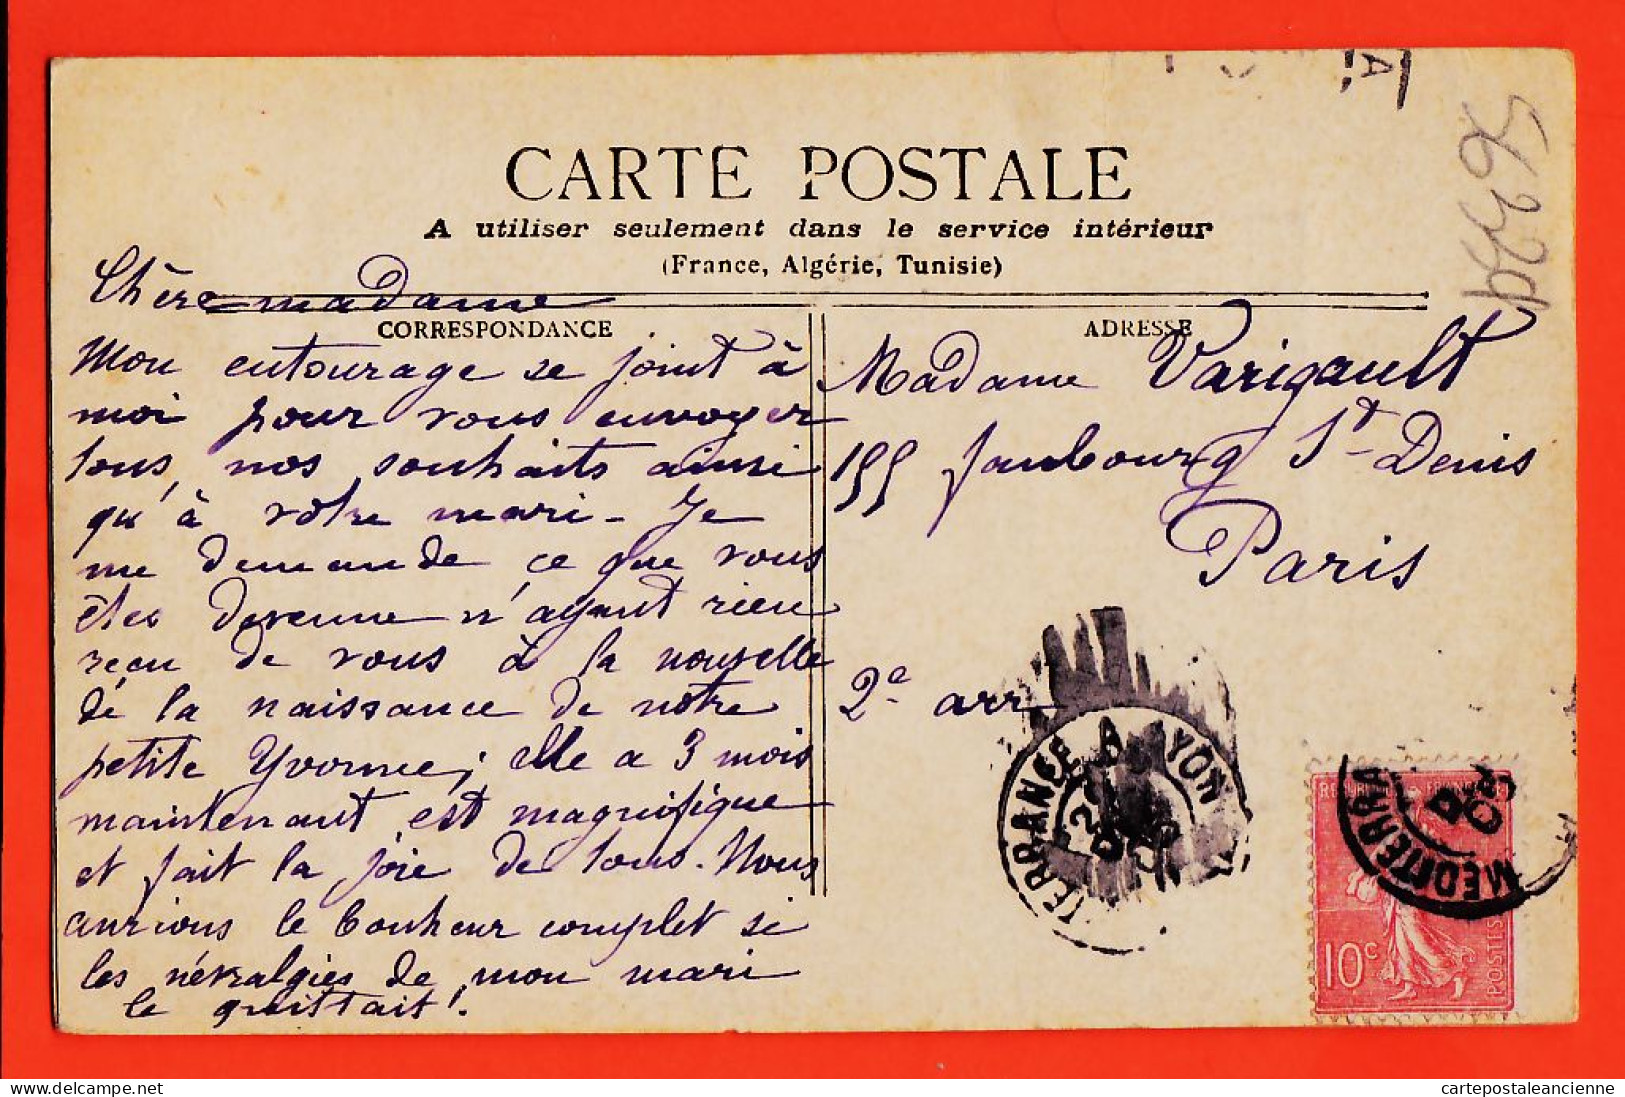 CARTE POSTALE
A utiliser seulement dans le service intérieur
(France, Algérie, Tunisie)
CORRESPONDANCE
Chère madame
Mon entourage se joint à
moi pour vous envoyer
tous, nos souhaits ainsi
qu'à votre mari - Je
me demande ce que vous
êtes devenue n'ayant rien
reçu de vous à la nouvelle
de la naissance de notre
petite Yvonne; elle a 3 mois
maintenant est magnifique
et fait la joie de tous. Nous
aurions le bonheur complet si
les névralgies de mon mari
le quittait!
ADRESSE
Madame Varigault
155 faubourg St Denis
Paris
2e arr
MEDITERRA
10c
POSTES
cartepostaleancienne